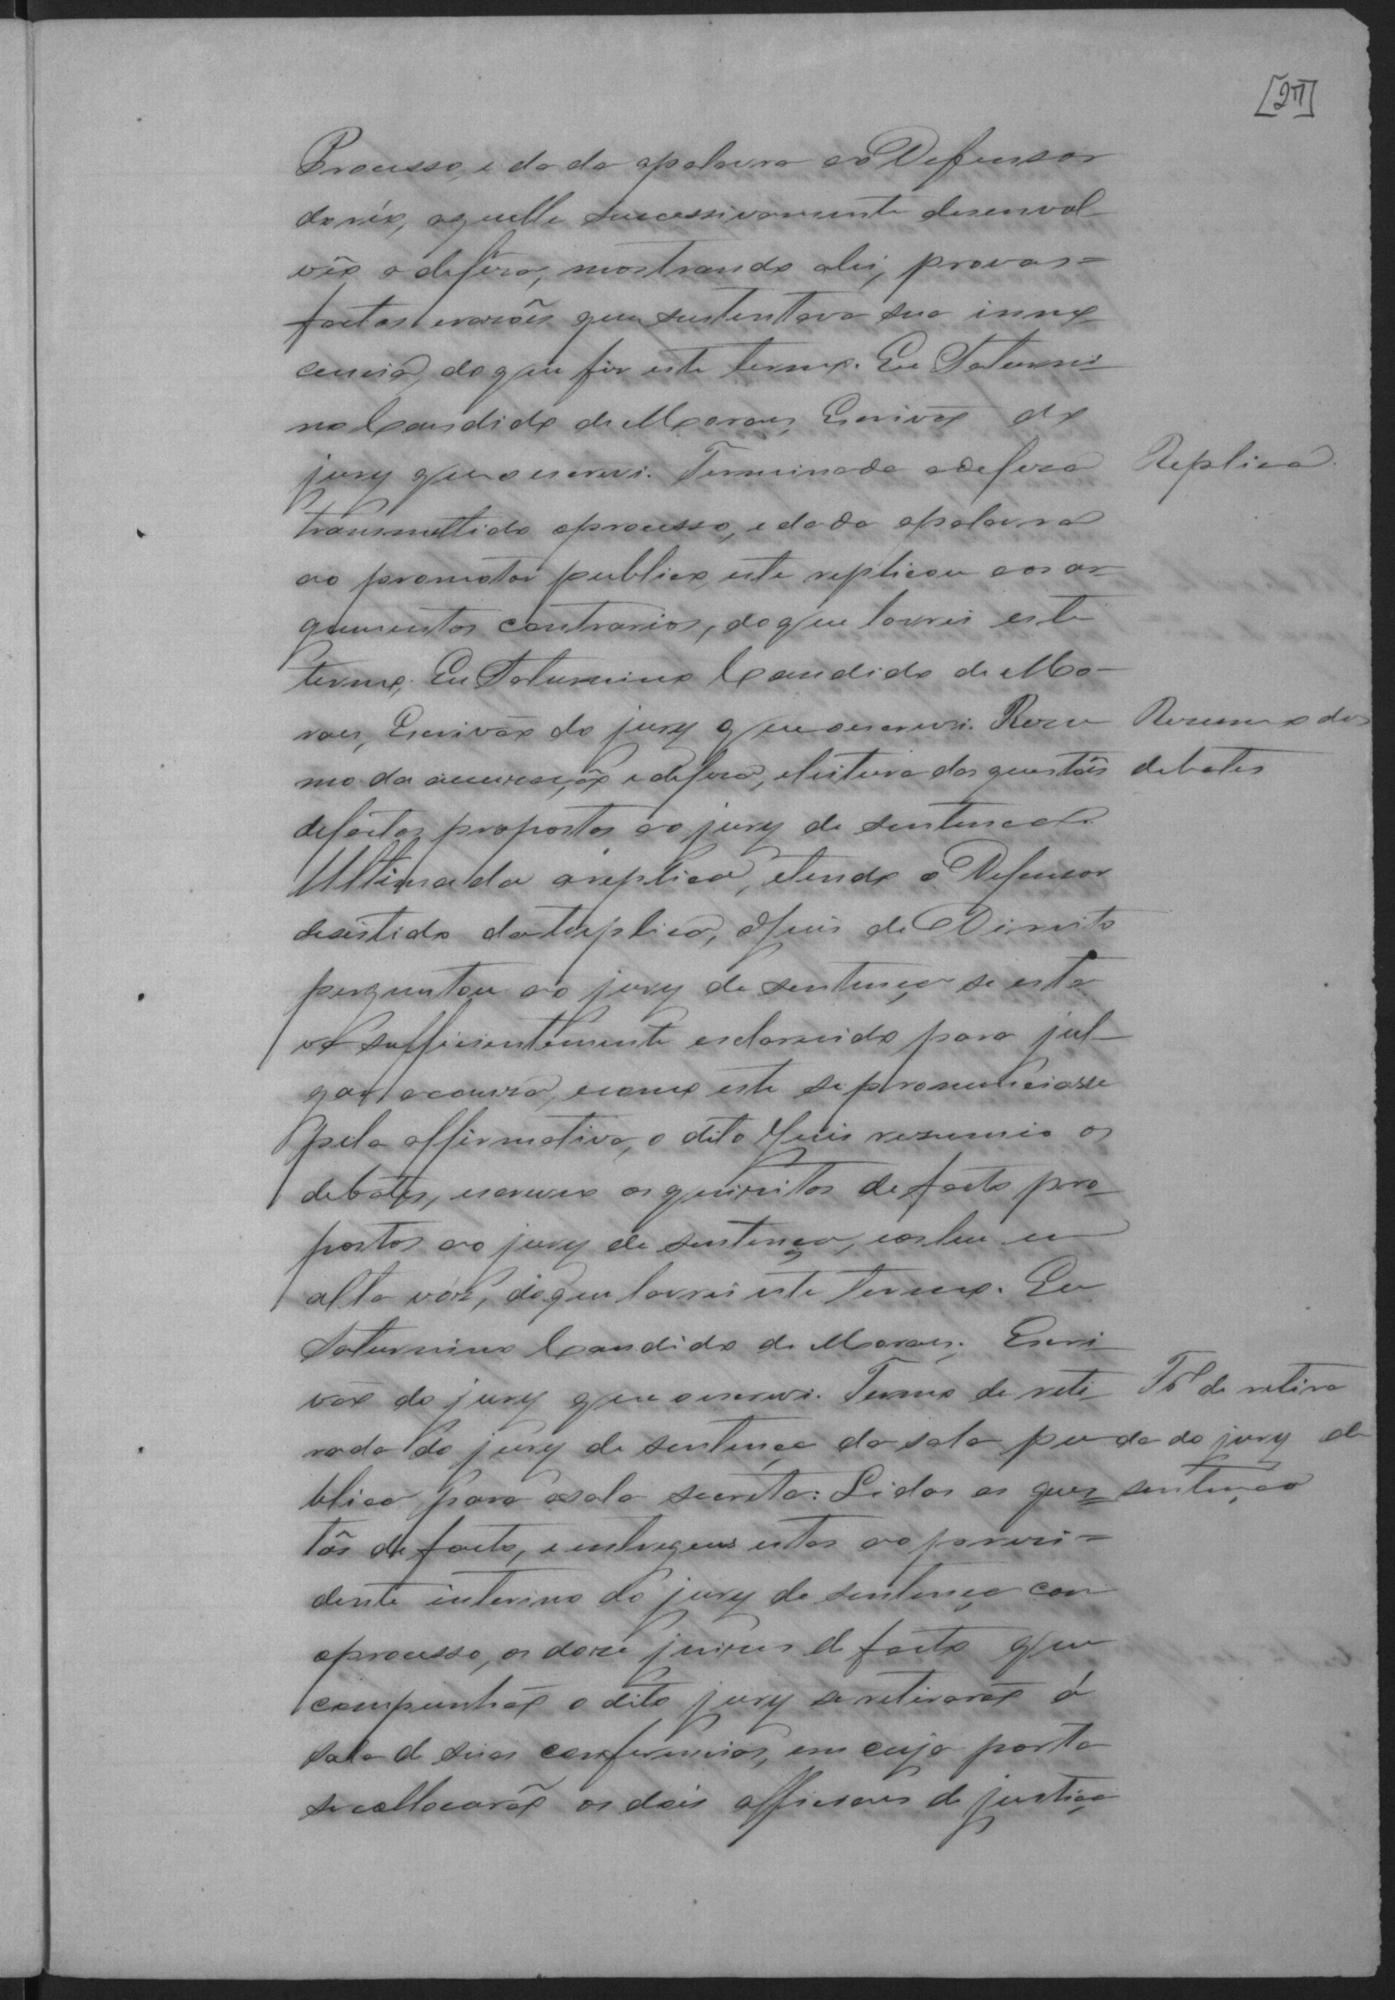 [27]
Processo, e dada apalavra ao Defensor
do réo, aquelle successivamente desenvol-
vêo a defêza, mostrando a lei, provas=
factos erazões que sustentava sua inno-
cencia, doque fiz este termo. Eu Saturni-
no Candido de Moraes, Escrivão do
jury que o escrevi. Terminada adefeza Replica.
transmettido oprocesso, e dada apalavra
ao promotor publico, este replicou aos ar-
gumentos contrarios, doque lavrei este
termo. Eu Saturnino Candido de Mo-
raes, Escrivão do jury que o escrevi. Rezu- Rezumo dos
mo da accuzação e defeza, eleitura das questões debates
defactos propostos ao jury de sentença.
Ultimada areplica, etendo o Defensor
desistido datreplica, oJuis de Direito
perguntou ao jury de sentença se esta-
va sufficientemente esclarecido para jul-
gar acauza, ecomo este se pronunciasse
pela affirmativa, o dito Juis rezumio os
debates, escreveo os quizitos de facto pro-
postos ao jury de sentença, eos leu em
alta vóz, doque lavrei este termo. Eu
Saturnino Candido de Moraes, Escri-
vão do jury que o escrevi. Termo de reti- Tº de retira
rada do jury de sentença da sala pu- da do jury de
blica para asala secreta: Lidas as ques- sentença
tões de facto, e entregues estas ao prezi=
dente interino do jury de sentença com
oprocesso, os doze juizes de facto que
compunhão o dito jury se retirarão á
sala de suas conferencias, em cuja porta
se collocarão os dois officiaes de justiça